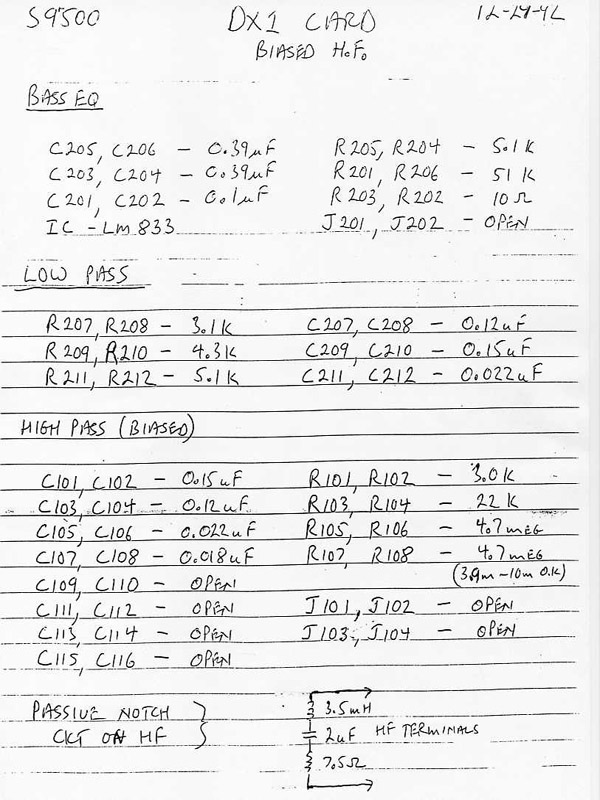 S9500 DX1 CARD 12-29-92
BIASED H.F.
BASS EQ
C205, C206 - 0.39uF R205, R204 - 5.1K
C203, C204 - 0.39uF R201, R206 - 51K
C201, C202 - 0.1uF R203, R202 - 10Ω
IC - LM833 J201, J202 - OPEN
LOW PASS
R207, R208 - 3.1K C207, C208 - 0.12uF
R209, R210 - 4.3K C209, C210 - 0.15uF
R211, R212 - 5.1K C211, C212 - 0.022uF
HIGH PASS (BIASED)
C101, C102 - 0.15uF R101, R102 - 3.0K
C103, C104 - 0.12uF R103, R104 - 22K
C105, C106 - 0.022uF R105, R106 - 4.7MEG
C107, C108 - 0.018uF R107, R108 - 4.7MEG
C109, C110 - OPEN (3.9M-10M O.K)
C111, C112 - OPEN J101, J102 - OPEN
C113, C114 - OPEN J103, J104 - OPEN
C115, C116 - OPEN
PASSIVE NOTCH 3.5mH
CKT ON HF 2uF HF TERMINALS
7.5Ω